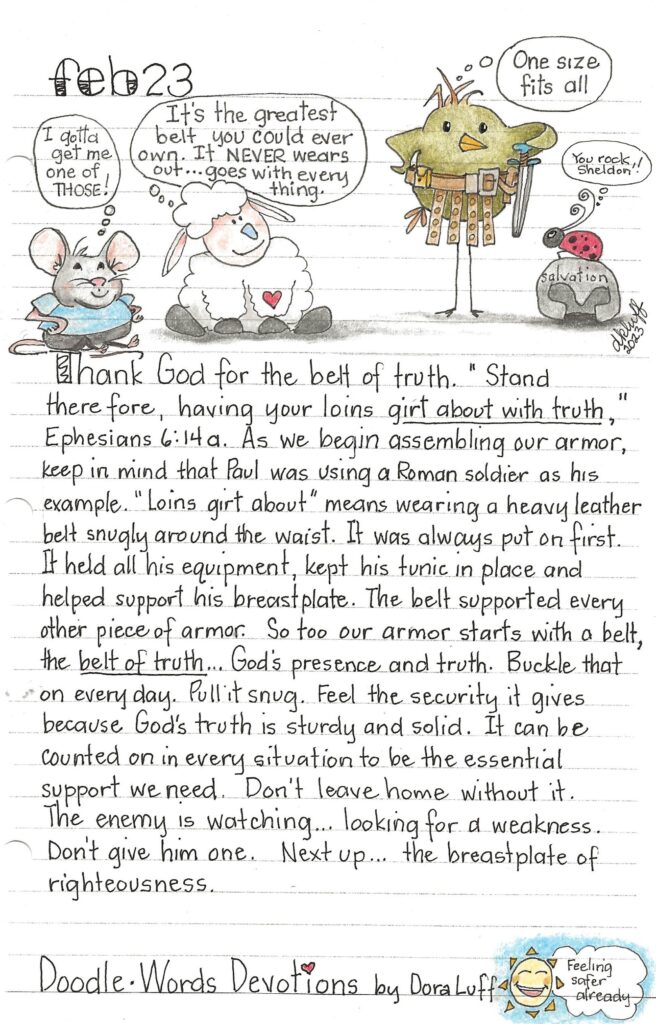 feb 23
I gotta
get me
one of
THOSE!
It's the greatest
belt you could ever
own. It NEVER wears
out...goes with every
thing.
One size
fits all
You rock,
Sheldon!
salvation
2023
Thank God for the belt of truth. "Stand
there fore, having your loins girt about with truth,"
Ephesians 6:14a. As we begin assembling our armor,
keep in mind that Paul was using a Roman soldier as his
example. "Loins girt about" means wearing a heavy leather
belt snugly around the waist. It was always put on first.
It held all his equipment, kept his tunic in place and
helped support his breastplate. The belt supported every
other piece of armor. So too our armor starts with a belt,
the belt of truth... God's presence and truth. Buckle that
on every day. Pull it snug. Feel the security it gives
because God's truth is sturdy and solid. It can be
counted on in every situation to be the essential
support we need. Don't leave home without it.
The enemy is watching... looking for a weakness.
Don't give him one. Next up... the breastplate of
righteousness.
Doodle·Words Devotions by Dora Luff
Feeling
safer
already